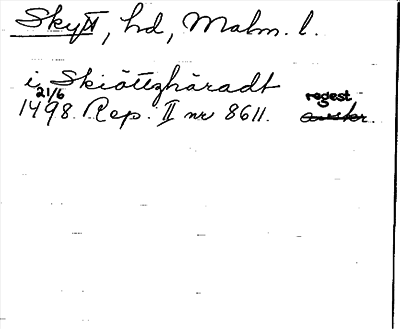 Skytt, hd, Malm. l.
i Skiöttzhäradt
21/6 regest
1498. Rep. II nr 8611. avskr.